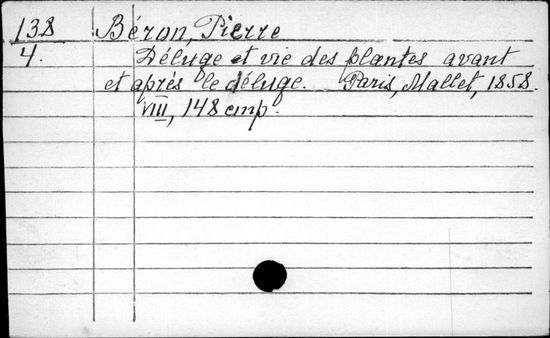 138 Béron, Pierre
4. Déluge et vie des plantes avant
et après le déluge. Paris, Mallet, 1858.
VIII, 148 стр.